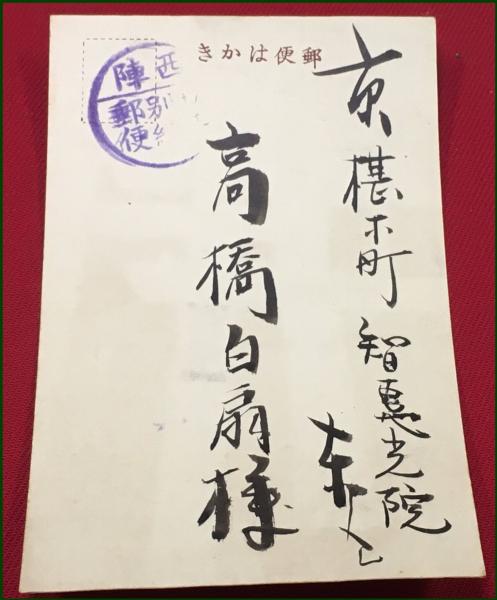 郵便はかき
西陣
別納
郵便
京椹木町智惠光院
東入ル
高橋白扇様